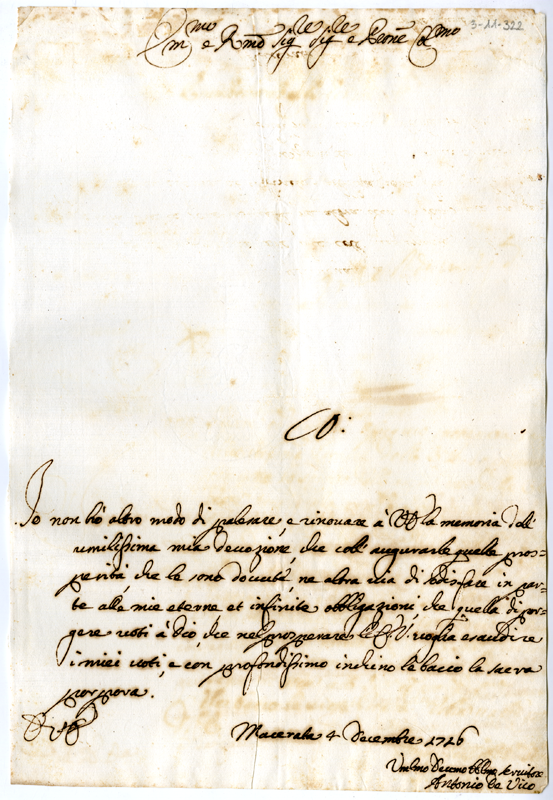 3-11-322
Em.mo e R.mo Sig.re Sig.re e Prone Col.mo
Io non hò altro modo di palesare, e rinouare à VE la memoria dell'
umilissima mia deuozione, che coll' augurarle quelle pros-
perità, che le sono douute, ne altra uia di sodisfare in par-
te alle mie eterne et infinite obbligazioni che quella di por-
gere uoti à Dio, che nel prosperare l'E.V. uoglia esaudire
i miei uoti, e con profondissimo inchino le bacio la sacra
porpora.
VE
Macerata 4 Decembre 1716
Um.mo Deu.mo Obl.mo Seruitore
Antonio de Vico